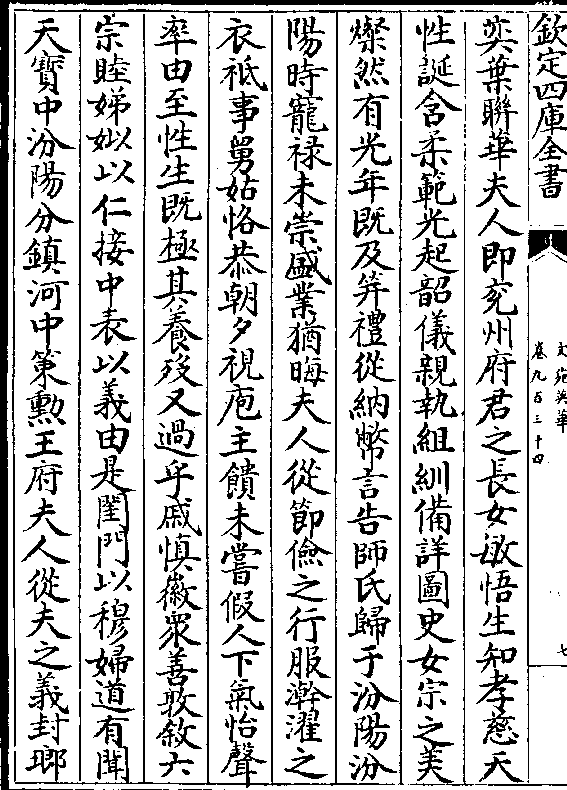 欽定四庫全書
文苑英華
卷九百三十四
七
奕葉聯華夫人即兖州府君之長女敏悟生知孝慈天
性誕含柔範光起韶儀親執組紃備詳圖史女宗之美
燦然有光年既及笄禮從納幣言告師氏歸于汾陽汾
陽時寵禄未崇盛業猶晦夫人從節儉之行服澣濯之
衣祗事舅姑恪恭朝夕視庖主饋未嘗假人下氣怡聲
率由至性生既極其養歿又過乎戚慎徽衆善敦敘六
宗睦娣姒以仁接中表以義由是閨門以穆婦道有聞
天寳中汾陽分鎮河中策勲王府夫人從夫之義封瑯